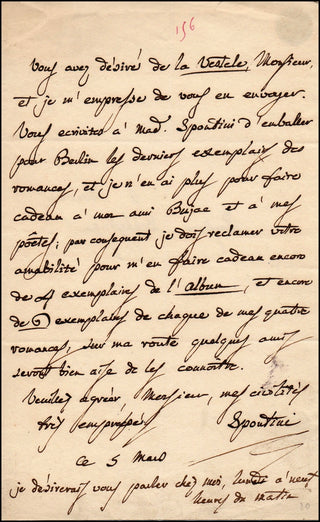 156
Vous avez désiré de la Vestale, Monsieur,
et je m'empresse de vous en envoyer.
Vous ecrivites à Mad. Spontini d'emballer
pour Berlin les derniers exemplaires des
romances, et je n'en ai plus pour faire
cadeau à mon ami Bujac et à mes
poêtes; par consequent je dois reclamer votre
amabilité pour m'en faire cadeau encore
de 4 exemplaires de l'album, et encore
de 6 exemplaires de chaque de mes quatre
romances, sur ma route quelques amis
seront bien aise de les connoître.
Veuillez agréer Monsieur, mes civilités
très empressées
Spontini
ce 5 Mars
je désirerais vous parler chez moi, lundi à neuf
heures du matin